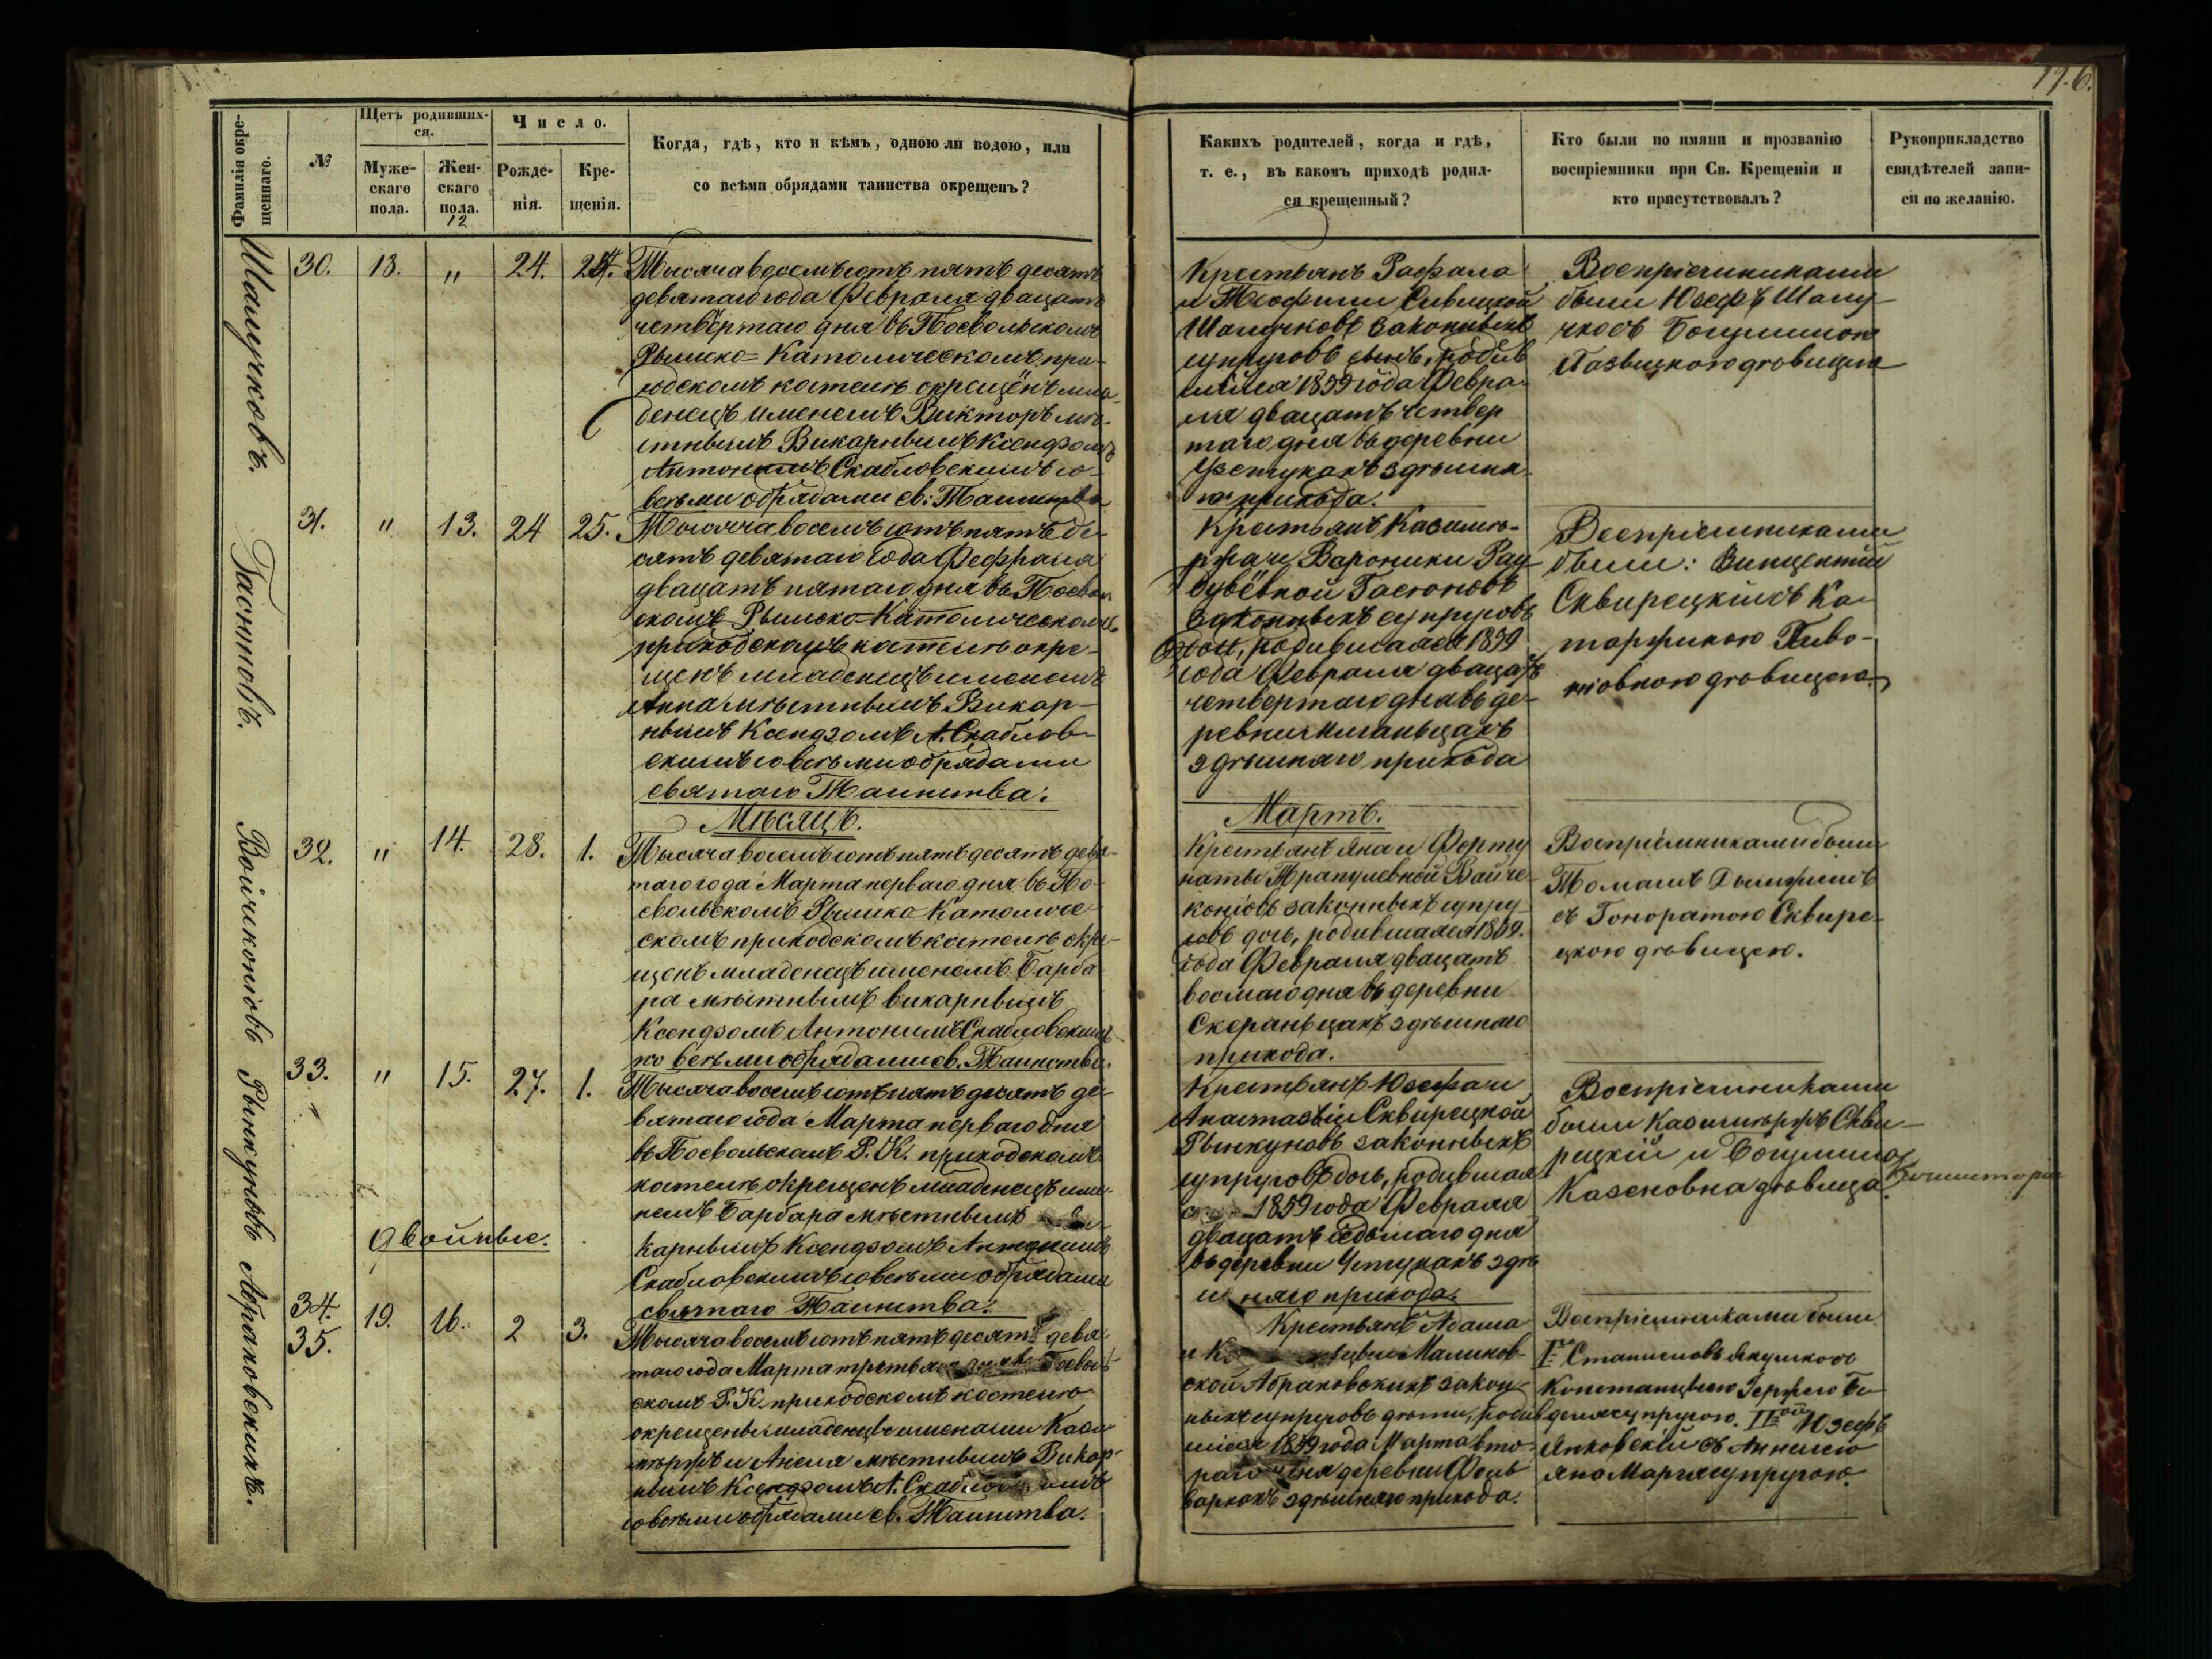 17.6.
Фамилія окре-
щеннаго.
№
Щетъ родивших-
ся.
Муже-
скаго
пола.
Жен-
скаго
пола.
12
Число.
Рожде-
нія.
Кре-
щенія.
Когда, гдѣ, кто и кѣмъ, одною ли водою, или
со всѣми обрядами таинства окрещенъ?
Каких родителей, когда и гдѣ,
т. е., въ какомъ приходѣ родил-
ся крещенный?
Кто были по имяни и прозванію
воспріемники при Св. Крещеніи и
кто присутствовалъ?
Рукоприкладство
свидѣтелей запи-
си по желанію.
30. 18. " 24. 24.
Тысяча восемъсотъ пятъ десятъ
девятаго года Февраля двацатъ
четвёртаго дня въ Посвольскомъ
Рымско=Католическомъ при-
ходскомъ костелѣ окрещёнъ мла-
денецъ именемъ Викторъ мѣ-
стнымъ Викарнымъ Ксендзомъ
Антонимъ Скабловскимъ со
всѣми обрядами св: Таинства
Крестьянъ Рафала
и Теофили
законныхъ
супруговъ сынъ, родив
шійся 1859 года Февра-
ля двацатъ четвер
таго дня въ деревни
здѣшня
го прихода.
Воспріемниками
были Юзефъ Шалу-
чковъ Богумилою
дѣвицею
31. " 13. 24 25.
Тысяча восемъ сотъ пятъ де-
сятъ девятаго года Февраля
двацатъ пятаго дня въ Посволь
скомъ Рымско-Католическомъ
приходскомъ костелѣ окре-
щенъ младенецъ именемъ
Анна мѣстнымъ Викар-
нымъ Ксендзомъ А. Скаблов-
скимъ со всѣми обрядами
святаго Таинства.
Крестьянъ Казимѣ-
ржа и Вароники Рау
бувёвной
законныхъ супруговъ
дочь, родившаяся 1859
года Февраля двацатъ
четвертаго дня въ де-
ревни
здѣшняго прихода
Воспріемниками
были: Винцентій
Сквирецкій съ Ка-
таржиною Пиво-
рюновною дѣвицею.
Мѣсяцъ.
Мартъ.
32. " 14. 28. 1.
Тысяча восемъ сотъ пятъ десятъ девя-
таго года Марта перваго дня въ По-
свольскомъ Рымско-Католиче-
скомъ приходскомъ костелѣ окре-
щенъ младенецъ именемъ Барба
ра мѣстнымъ викарнымъ
Ксендзомъ Антонимъ Скабловскимъ
со всѣми обрядами св. Таинства.
Крестьянъ Яна и Форту
наты Трапулевной Войче-
конювъ законныхъ супру-
говъ дочь, родившаяся 1859.
года Февраля двацатъ
восмаго дня въ деревни
здѣшняго
прихода.
Воспріемниками были
Томашъ
съ Гоноратою Сквире-
цкою дѣвицею.
33. " 15. 27. 1.
Тысяча восемъ сотъ пятъ десятъ де-
вятаго года Марта перваго дня
въ Посвольскомъ Р. К. приходскомъ
костелѣ окрещенъ младенецъ име-
немъ Барбара мѣстнымъ Ви-
карнымъ Ксендзомъ Антонимъ
Скабловскимъ со всѣми обрядами
святаго Таинства.
Крестьянъ Юзефа и
Анастазіи Сквирецкой
Рынкуновъ законныхъ
супруговъ дочь, родившая
ся 1859 года Февраля
двацатъ седьмаго дня
въ деревни здѣ
шняго прихода.
Воспріемниками
были Казимѣржъ Скви-
рецкій и Богумила
Казеновна дѣвица.
двойные.
34.
35.
19. 16. 2 3.
Тысяча восемъ сотъ пятъ десятъ девя-
таго года Марта третьяго дня въ Посволь-
скомъ Р. К. приходскомъ костелѣ
окрещены младенцы именами Кази
мѣржъ и Анеля мѣстнымъ Викар-
нымъ Ксендзомъ А. Скабловскимъ
со всѣми обрядами св. Таинства.
Крестьянъ Адама
и Маликов-
ской Абраковскихъ закон-
ныхъ супруговъ дѣти, родив
шіеся 1859 года Марта вто-
раго дня деревни Фоль
варкахъ здѣшняго прихода.
Воспріемниками были
Iе Станиславъ Якушковъ
Констанцыею
супругою. IIой Юзефъ
Янковскій съ
супругою
Шалучковъ.
Гасюновъ.
Войчиконювъ
Рынкуновъ
Абраковскихъ.